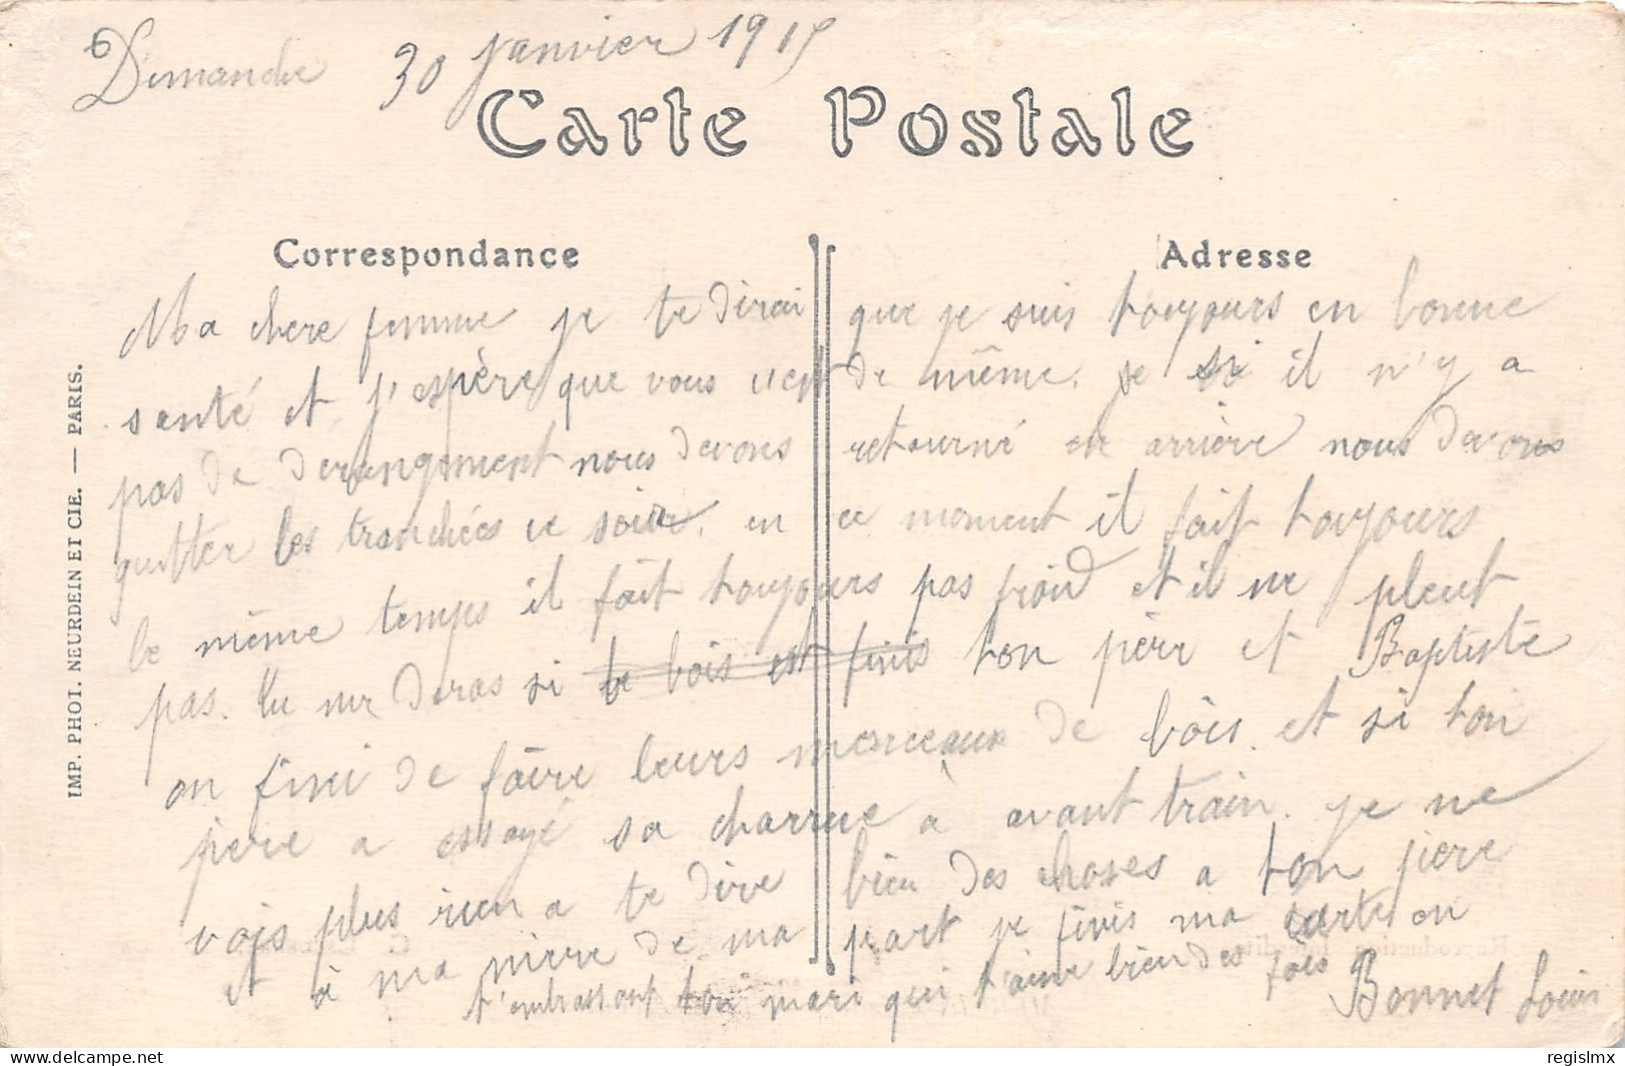 Dimanche 30 Janvier 191
Carte Postale
Correspondance
Adresse
Ma chere femme je te dirai que je suis toujours en bonne
santé et j'espère que vous de même. je si il n'y a
pas de derangement nous devons retourné en arrière nous devons
quitter les tranchées ce soir. en ce moment il fait toujours
le même temps il fait toujours pas froid et il ne pleut
pas. tu me diras si le bois est finis ton père et Baptiste
on fini de faire leurs monceaux de bois. et si ton
père a essayé sa charrue à avant train. je ne
vois plus rien a te dire bien des choses a ton père
et à ma mere de ma part je finis ma carte en
t'embrassant ton mari qui t'aime bien des fois Bonnet Louis
IMP. PHOT. NEURDEIN ET CIE. — PARIS.
Reproduction Interdite
delcampe.net
regislmx